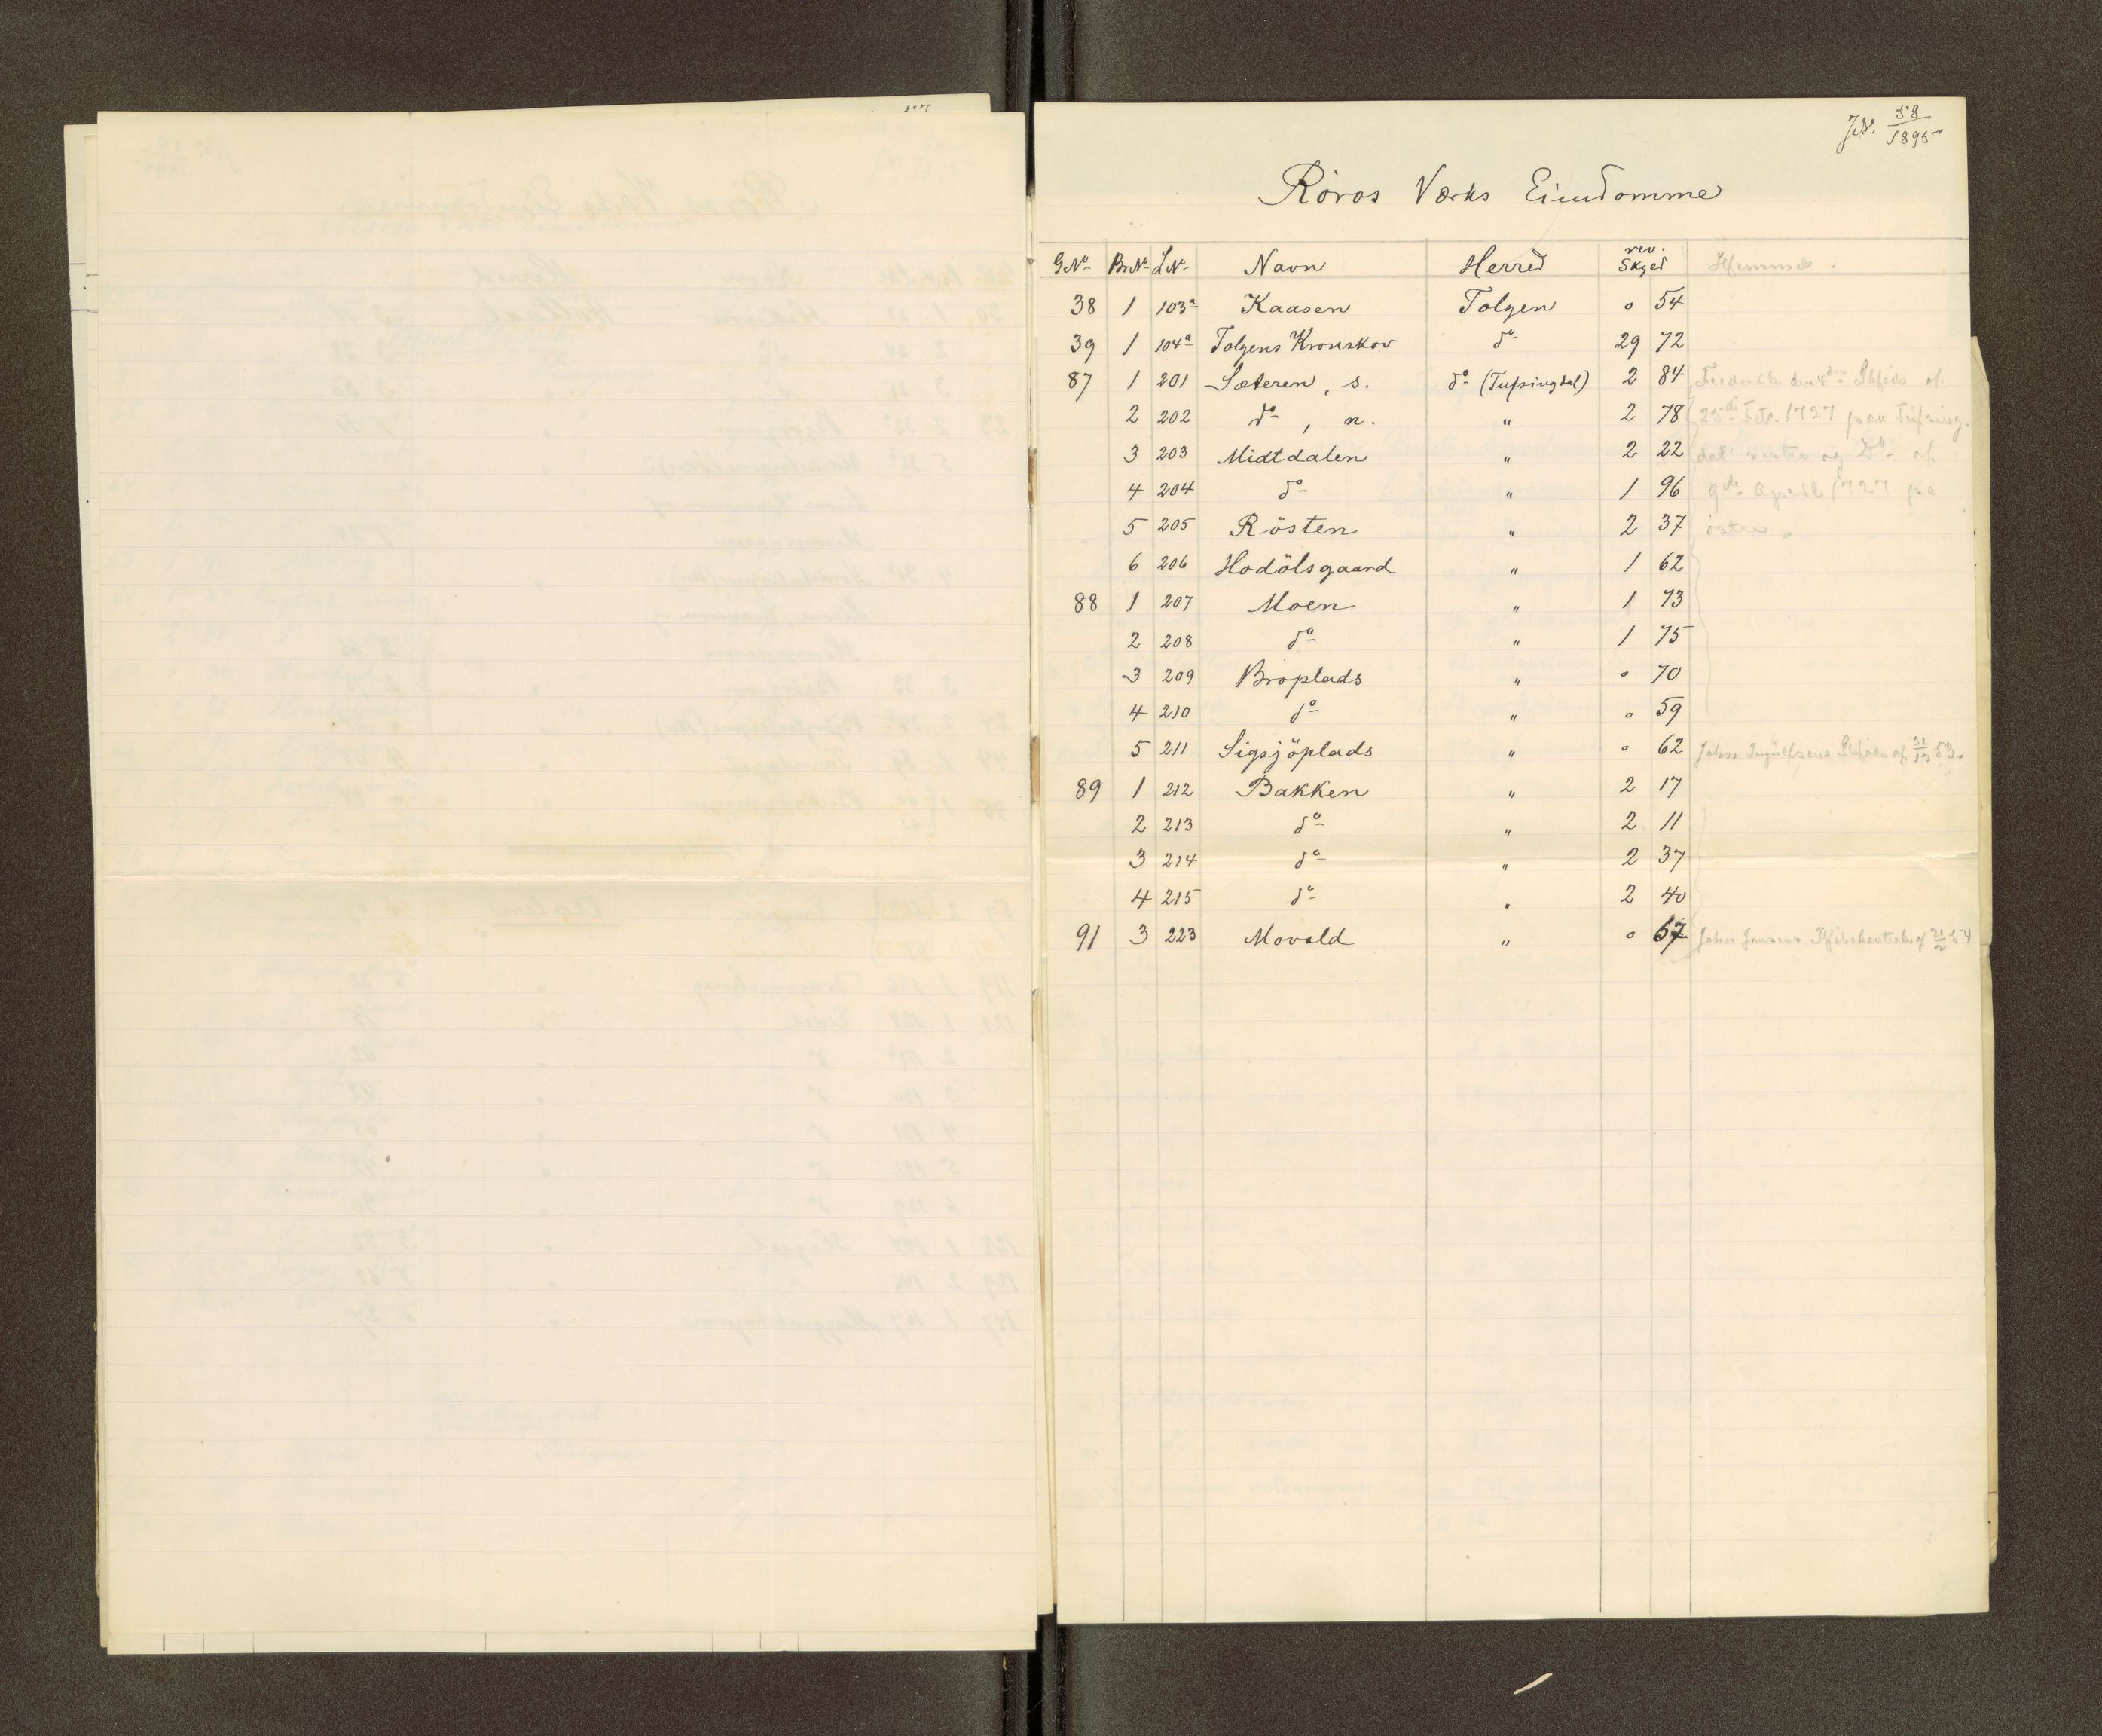 JN. 58/1895
Röros Værks Eiendomme
GNo BrNo LNo Navn Herred rev. Skyld Hjemmel.
38 1 103a Kaasen Tolgen 0 54
39 1 104a Tolgens Kronskov do 29 72
87 1 201 Sæteren, s. do (Tufsingdal) 2 84 Frederik den 4des Skjøde af
2 202 do, n. " 2 78 25de Febr. 1727 paa Tufsing-
3 203 Midtdalen " 2 22 dal vestre og Do af
4 204 do " 1 96 9de April 1727 pa
5 205 Rösten " 2 37 östre.
6 206 Hodölsgaard " 1 62
88 1 207 Moen " 1 73
2 208 do " 1 75
3 209 Broplads " 0 70
4 210 do " 0 59
5 211 Sigsjöplads " 0 62 John Ingulfsens Skjøde af 21/12 53.
89 1 212 Bakken " 2 17
2 213 do " 2 11
3 214 do " 2 37
4 215 do " 2 40
91 3 223 Movold " 0 67 John Jensens af 21/2 54